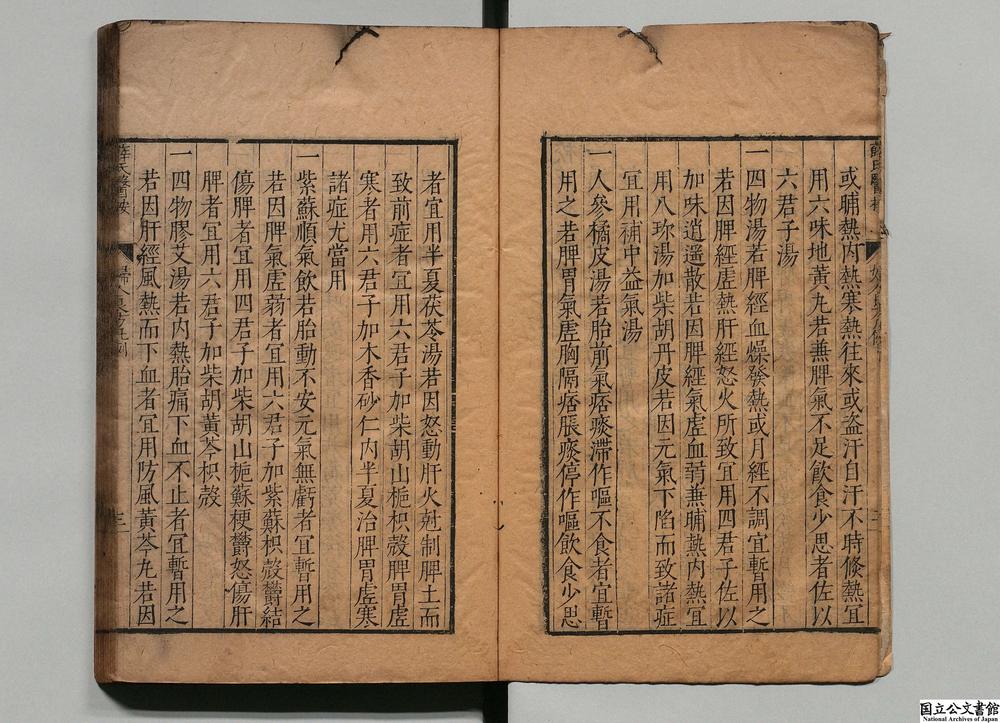 或晡熱内熱寒熱往來或盗汗自汗不時倏熱宜
用六味地黄丸若兼脾氣不足飲食少思者佐以
六君子湯
一四物湯若脾經血燥發熱或月經不調宜暫用之
若因脾經虚熱肝經怒火所致宜用四君子佐以
加味逍遥散若因脾經氣虚血弱兼晡熱内熱宜
用八珍湯加柴胡丹皮若因元氣下陷而致諸症
宜用補中益氣湯
一人參橘皮湯若胎前氣痞痰滯作嘔不食者宜暫
用之若脾胃氣虚胸膈痞脹痰停作嘔飲食少思
者宜用半夏茯苓湯若因怒動肝火尅制脾土而
致前症者宜用六君子加柴胡山梔枳殻脾胃虚
寒者用六君子加木香砂仁内半夏治脾胃虚寒
諸症尤當用
一紫蘇順氣飲若胎動不安元氣無虧者宜暫用之
若因脾氣虚弱者宜用六君子加紫蘇枳殻欝結
傷脾者宜用四君子加柴胡山梔蘇梗欝怒傷肝
脾者宜用六君子加柴胡黄芩枳殻
一四物膠艾湯若内熱胎痛下血不止者宜暫用之
若因肝經風熱而下血者宜用防風黄芩丸若因
薛氏醫按
三
国立公文書館
National Archives of Japan